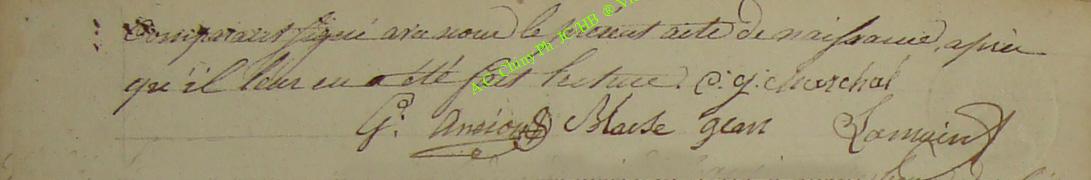 Comparant signé avec nous le présent acte de naissance, après
qu'il leur en a été fait lecture. C. g. Marchal
G. Blaise jean Lamain